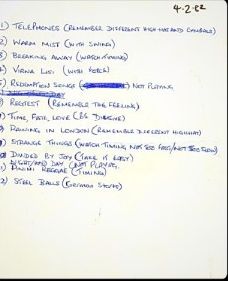 4-2-82
1) TELEPHONES (REMEMBER DIFFERENT HIGH HAT AND CYMBALS)
2) WARM MIST (WITH SWING)
3) BREAKING AWAY (WATCH TIMING)
) (WITH
) REDEMPTION SONGS NOT PLAYING
) (REMEMBER THE FEELING)
) TIME, FATE, LOVE (BE
) RAINING IN LONDON (REMEMBER DIFFERENT HIGHHAT)
) STRANGE THINGS (WATCH TIMING NOT TOO FAST/NOT TOO SLOW)
) DIVIDED BY JOY (TAKE IS EASY)
NIGHT AND DAY (NOT PLAYING)
) REGGAE (TIMING)
2) STEEL BALLS (